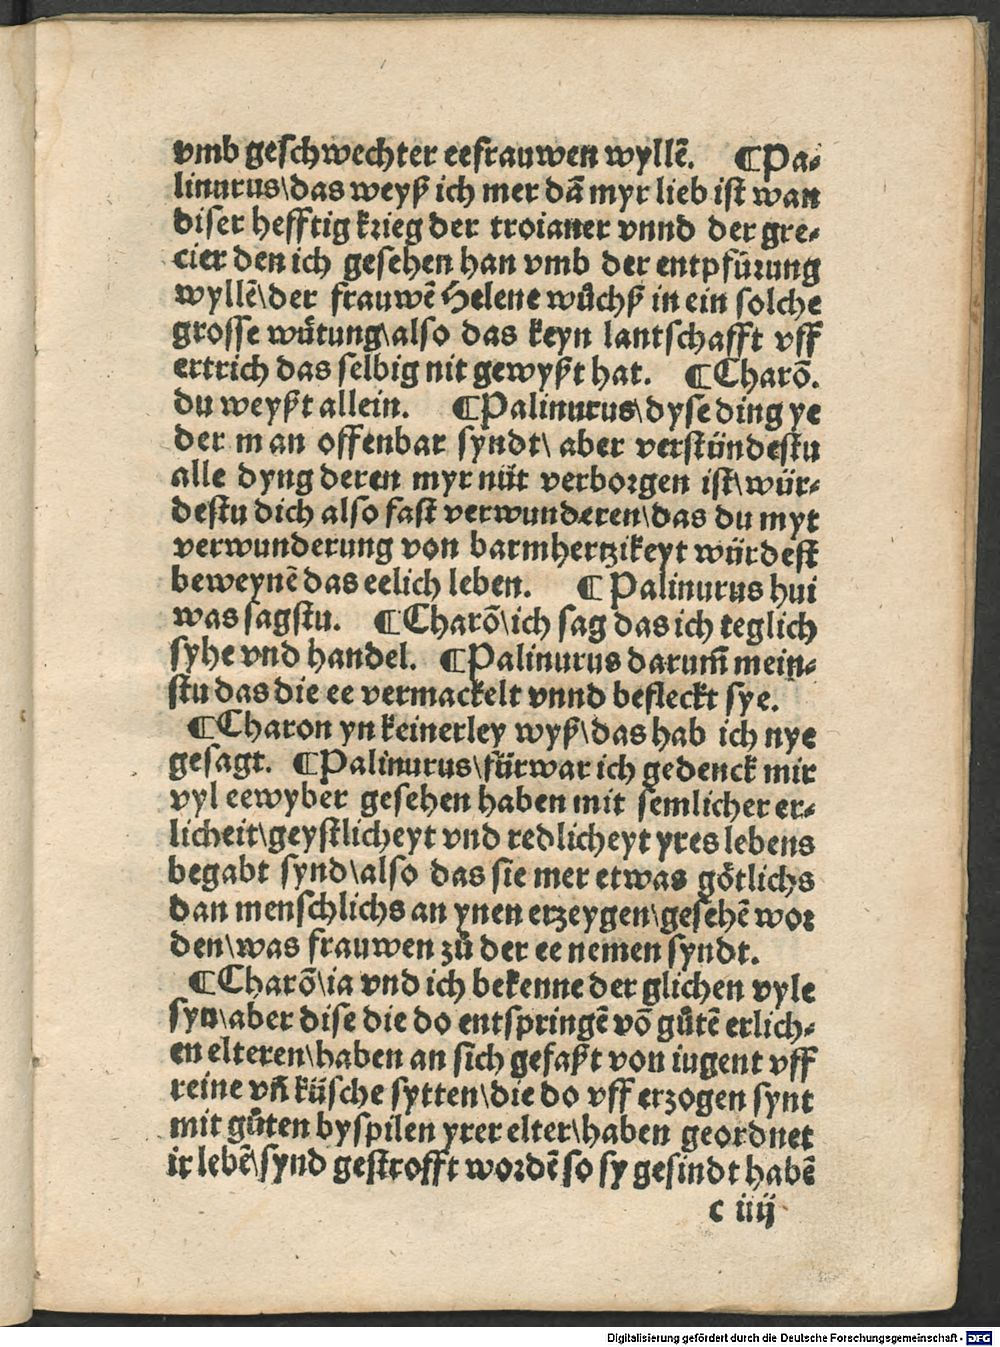 vmb geschwechter eefrauwen wyllẽ. ¶Pa⸗
linurus\das weyß ich mer dañ myr lieb ist wan
diser hefftig krieg der troianer vnnd der gre⸗
cier den ich gesehen han vmb der entpfürung
wyllẽ\der frauwẽ Helene wůchß in ein solche
grosse wütung\also das keyn lantschafft vff
ertrich das selbig nit gewyßt hat. ¶Charõ.
du weyßt allein. ¶Palinurus\dyse ding ye
der man offenbar syndt\ aber verstündestu
alle dyng deren myr nüt verborgen ist\wür⸗
destu dich also fast verwunderen\das du myt
verwunderung von barmhertzikeyt würdest
beweynẽ das eelich leben. ¶Palinurus hui
was sagstu. ¶Charõ\ich sag das ich teglich
syhe vnd handel. ¶Palinurus darum̃ mein⸗
stu das die ee vermackelt vnnd befleckt sye.
¶Charon yn keinerley wyß\das hab ich nye
gesagt. ¶Palinurus\fürwar ich gedenck mir
vyl eewyber gesehen haben mit semlicher er⸗
licheit\geystlicheyt vnd redlicheyt yres lebens
begabt synd\also das sie mer etwas götlichs
dan menschlichs an ynen erzeygen\gesehẽ wor
den\was frauwen zů der ee nemen syndt.
¶Charõ\ia vnd ich bekenne der glichen vyle
syn\aber dise die do entspringẽ võ gůtẽ erlich⸗
en elteren\haben an sich gefaßt von iugent vff
reine vñ küsche sytten\die do vff erzogen synt
mit gůten byspilen yrer elter\haben geordnet
ir lebẽ\synd gestrofft wordẽ so sy gesindt habẽ
c iiij
Digitalisierung gefördert durch die Deutsche Forschungsgemeinschaft - DFG